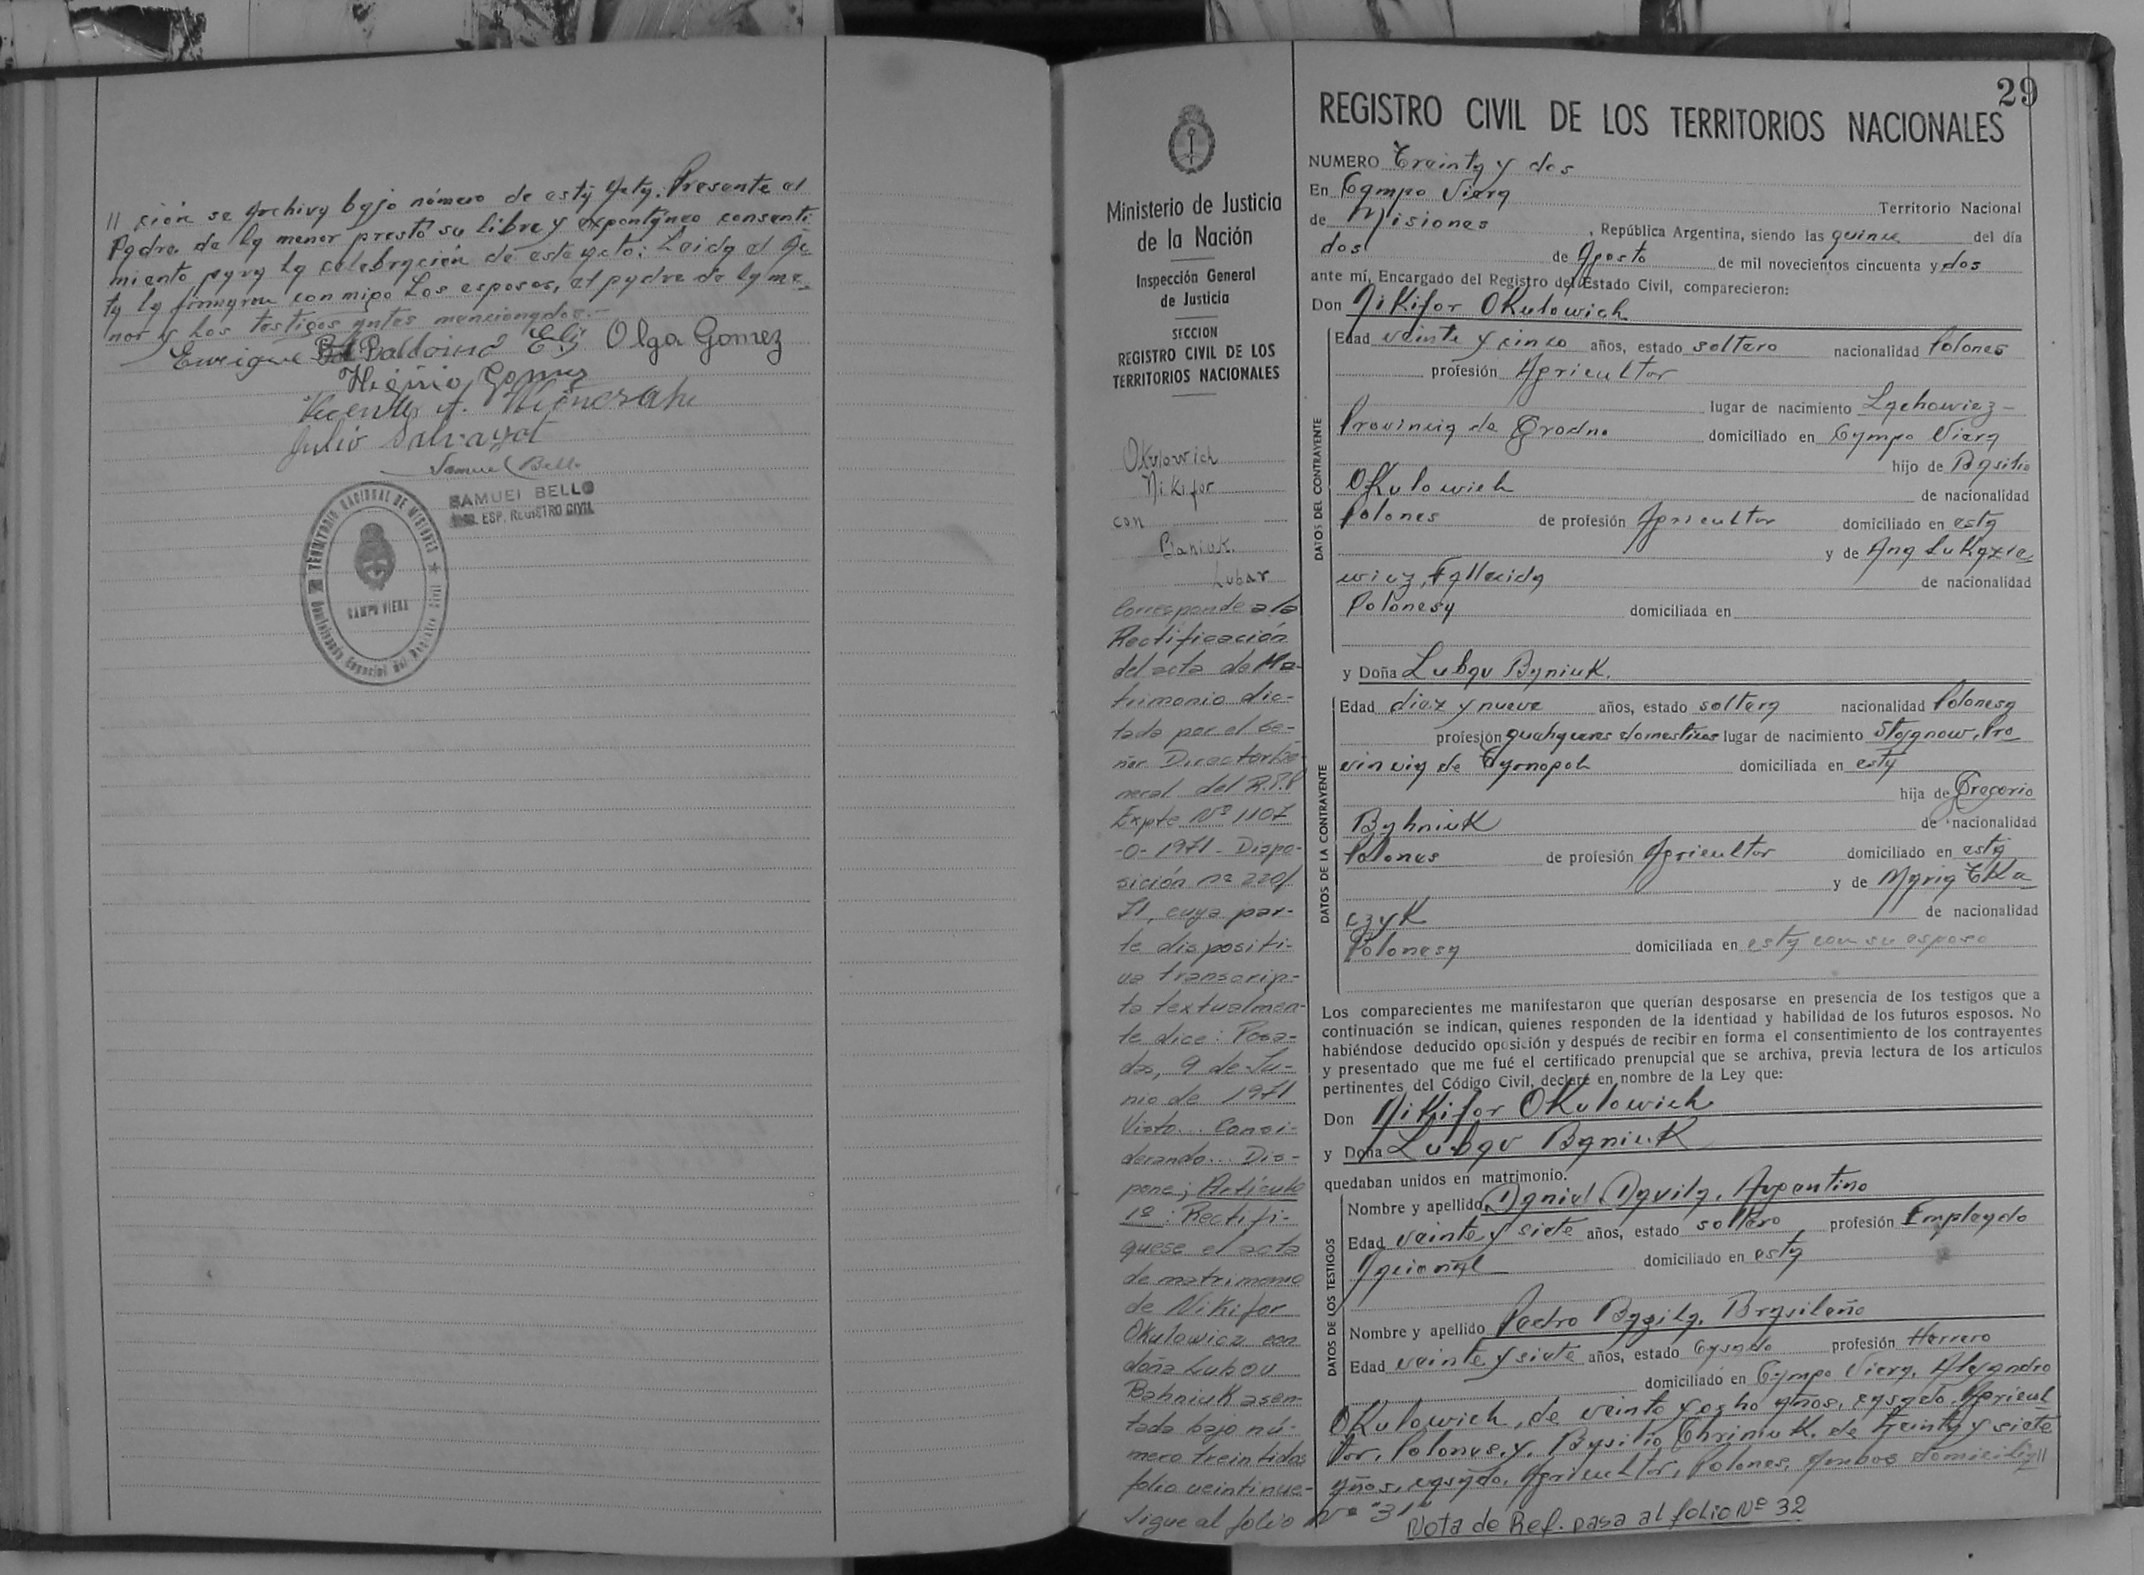 // ción se archiva bajo número de esta Acta. Presente el
Padre de la menor prestó su libre y expontáneo consenti
miento para la celebración de este acto: Leida el Ac
ta la firmaron conmigo Los esposos, el padre de la me
nor y Los testigos antes mencionados.-
Enrique Baldoino Olga Gomez
Higinio Gomez
Vicente A.
Julio
Samuel Bello
SAMUEL BELLO
ESP. REGISTRO CIVIL
TERRITORIO NACIONAL DE MISIONES
CAMPO VIERA
29
Ministerio de Justicia
de la Nación
Inspección General
de Justicia
SECCION
REGISTRO CIVIL DE LOS
TERRITORIOS NACIONALES
Okulowich
Nikifor
con
Baniuk
Lubav
Corresponde a la
Rectificación
del acta de Ma-
trimonio dic-
tada por el se-
ñor Director Ge-
neral del R.P.P
Expte Nº 1107
-O- 1971 - Dispo-
sición nº 220/
71, cuya par-
te dispositi-
va transcrip-
ta textualmen-
te dice: Posa-
das, 9 de Ju-
nio de 1971
Visto... Consi-
derando... Dis-
pone; Artículo
1º: Rectifí-
quese el acta
de matrimonio
de Nikifor
Okulowicz con
doña Lubov
Bahniuk asen
tada bajo nú-
mero treintidos
folio veintinue-
Sigue al folio Nº "31"
REGISTRO CIVIL DE LOS TERRITORIOS NACIONALES
NUMERO Treinta y dos
En Campo Viera Territorio Nacional
de Misiones, República Argentina, siendo las quince del día
dos de Agosto de mil novecientos cincuenta y dos
ante mí, Encargado del Registro del Estado Civil, comparecieron:
Don Nikifor Okulowich
DATOS DEL CONTRAYENTE
Edad veinte y cinco años, estado soltero nacionalidad Polones
profesión Agricultor
lugar de nacimiento Lachowicz-
Provincia de Grodno domiciliado en Campo Viera
hijo de Basilio
Okulowich de nacionalidad
Polones de profesión Agricultor domiciliado en esta
y de Ana Lukazie
wicz, Fallecida de nacionalidad
Polonesa domiciliada en
y Doña Lubav Baniuk.
DATOS DE LA CONTRAYENTE
Edad diez y nueve años, estado soltera nacionalidad Polonesa
profesión quehaceres domesticos lugar de nacimiento Stojanow, Pro
vincia de Tarnopol domiciliada en esta
hija de Gregorio
Bahniuk de nacionalidad
Polones de profesión Agricultor domiciliado en esta
y de Maria Tka
czyk de nacionalidad
Polonesa domiciliada en esta con su esposo
Los comparecientes me manifestaron que querían desposarse en presencia de los testigos que a
continuación se indican, quienes responden de la identidad y habilidad de los futuros esposos. No
habiéndose deducido oposición y después de recibir en forma el consentimiento de los contrayentes
y presentado que me fué el certificado prenupcial que se archiva, previa lectura de los artículos
pertinentes del Código Civil, declaré en nombre de la Ley que:
Don Nikifor Okulowich
y Doña Lubav Baniuk
quedaban unidos en matrimonio.
DATOS DE LOS TESTIGOS
Nombre y apellido Daniel Davila, Argentino
Edad veinte y siete años, estado soltero profesión Empleado
Nacional domiciliado en esta
Nombre y apellido Pedro Bazila, Brasileño
Edad veinte y siete años, estado Casado profesión Herrero
domiciliado en Campo Viera, Alejandro
Okulowich, de veinte y ocho años, casado, Agricul
tor, Polones, y. Basilio Chrimuk, de treinta y siete
años, casado, Agricultor, Polones, Ambos domicilia//
Nota de Ref. pasa al folio Nº 32